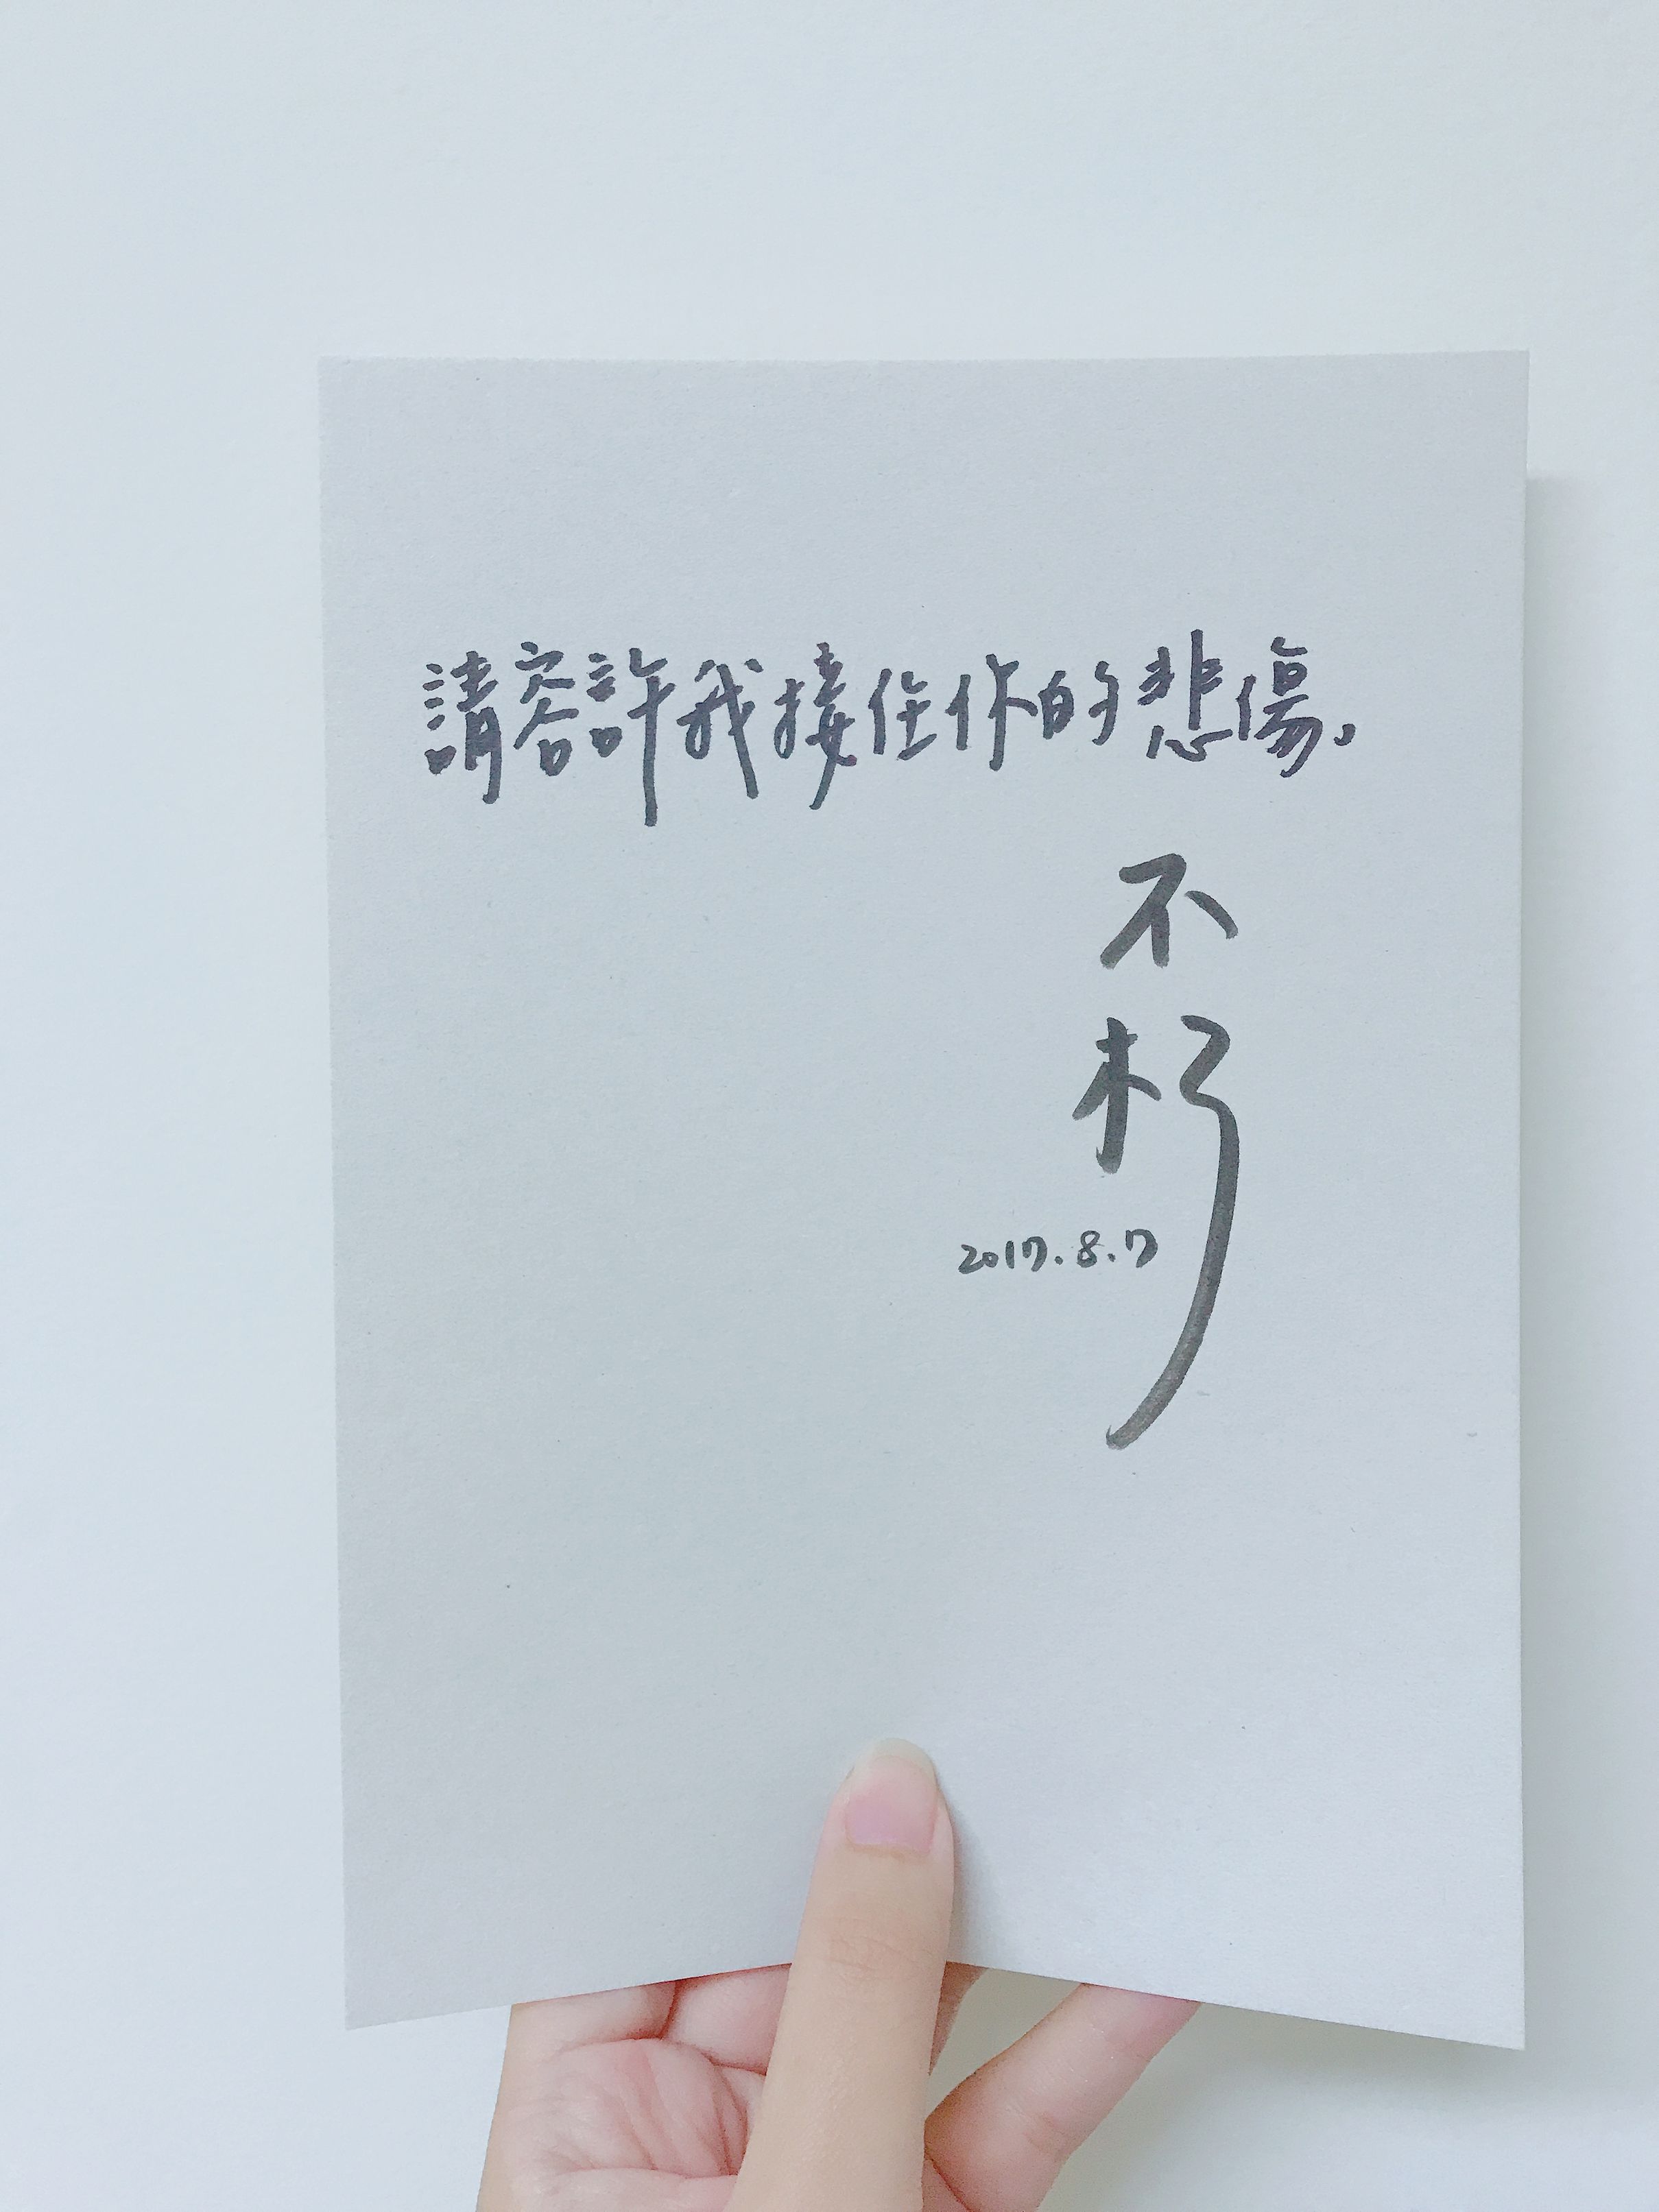 請容許我接住你的悲傷。
不朽
2017.8.7